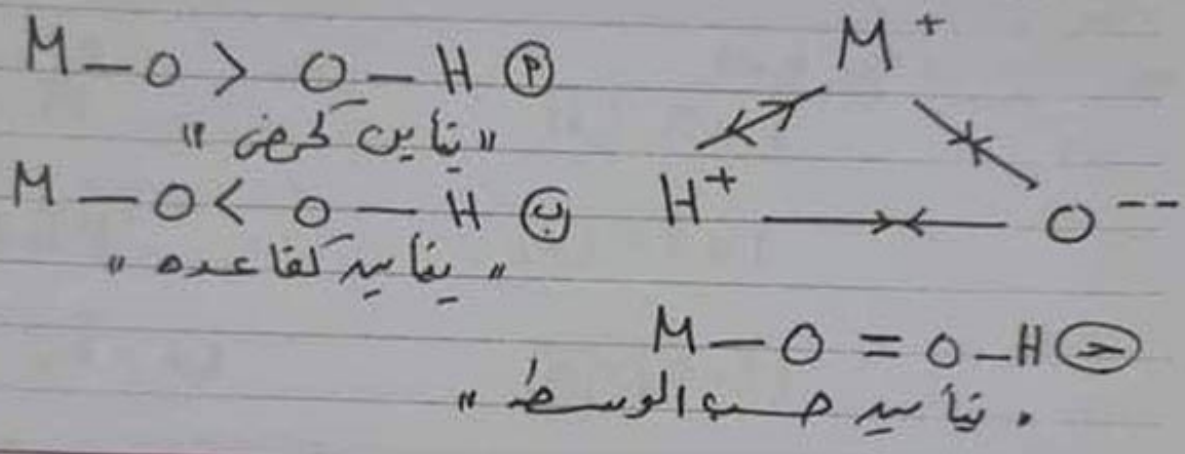 M – O > O – H (أ)
"يتأين كحمض"
M – O < O – H (ب)
"يتأين كقاعده"
M +
H + O --
M – O = O – H (ج)
"يتأين حسب الوسط"